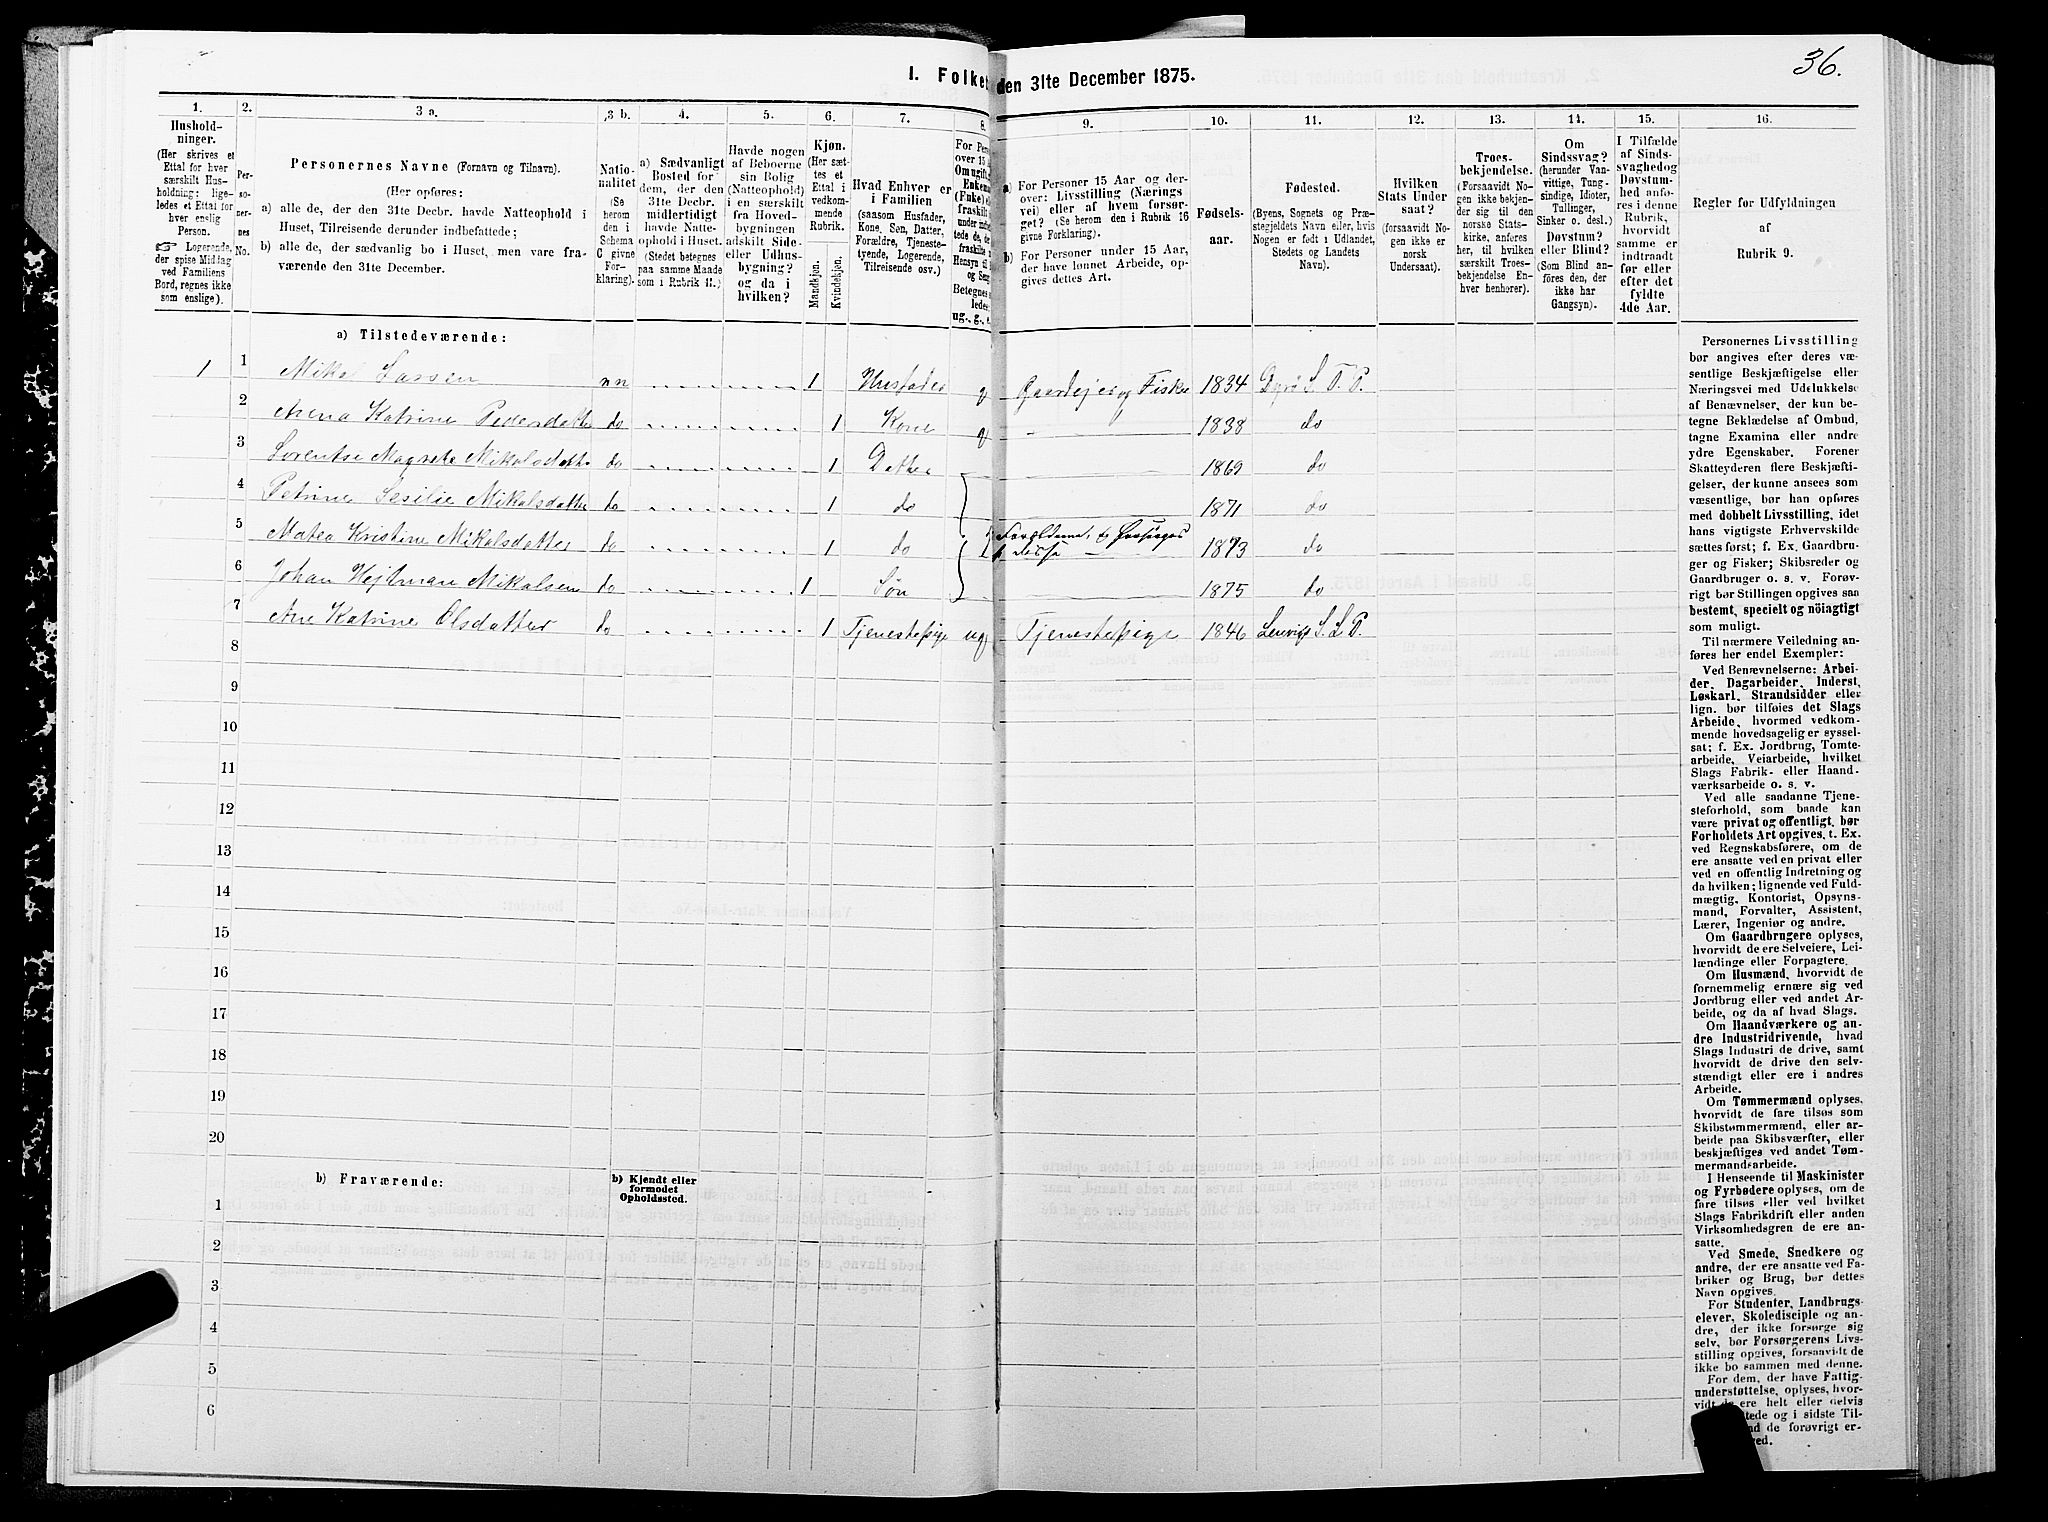 36.
I. Folket
den 31te December 1875.
1.
2.
3 a.
3 b.
4.
5.
6.
7.
8.
9.
10.
11.
12.
13.
14.
15.
16.
Hushold-
ninger.
(Her skrives et
Ettal for hver
særskilt Hus-
holdning: lige-
ledes et Ettal for
hver enslig
Person.
☞ Logerende,
der spise Middag
ved Familiens
Bord, regnes ikke
som enslige).
Per-
so-
ner-
nes
No.
Personernes Navne (Fornavn og Tilnavn).
(Her opføres:
a) alle de, der den 31te Decbr. havde Natteophold i
Huset, Tilreisende derunder indbefattede;
b) alle de, der sædvanlig bo i Huset, men vare fra-
værende den 31te December.
Natio-
nalitet
(Se
herom
den i
Schema
C givne
For-
klaring).
a) Sædvanligt
Bosted for
dem, der den
31te Decbr.
midlertidigt
havde Natte-
ophold i Huset.
(Stedet betegnes
paa samme Maade
som i Rubrik 11.)
Havde nogen
af Beboerne
sin Bolig
(Natteophold)
i en særskilt
fra Hoved-
bygningen
adskilt Side-
eller Udhus-
bygning?
og da i
hvilken?
Kjøn.
(Her sæt-
tes et
Ettal i
vedkom-
mende
Rubrik.
Mandkjøn.
Kvindekjøn.
Hvad Enhver er
i Familien
(saasom Husfader,
Kone, Søn, Datter,
Forældre, Tjeneste-
tyende, Logerende,
Tilreisende osv.)
For Pers
over 15 A
Om ugift,
Enkema
(Fuke) e
fraskilt
under indbe
tede de, de
fraskilte
Hensyn til
og Seng
Betegnes s
ledes:
ug., g., e.
a) For Personer 15 Aar og der-
over: Livsstilling (Nærings
vei) eller af hvem forsør-
get? (Se herom den i Rubrik 16
givne Forklaring).
b) For Personer under 15 Aar,
der have lønnet Arbeide, op-
gives dettes Art.
Fødsels-
aar.
Fødested.
(Byens, Sognets og Præ-
stegjeldets Navn eller, hvis
Nogen er født i Udlandet,
Stedets og Landets
Navn).
Hvilken
Stats Under
saat?
(forsaavidt No-
gen ikke er
norsk
Undersaat).
Troes-
bekjendelse.
(Forsaavidt No-
gen ikke bekjen-
der sig til den
norske Stats-
kirke, anføres
her, til hvilken
særskilt Troes-
bekjendelse En-
hver henhører).
Om
Sindssvag?
(herunder Van-
vittige, Tung-
sindige, Idioter,
Tullinger,
Sinker o. desl.)
Døvstum?
eller Blind?
(Som Blind an-
føres den, der
ikke har
Gangsyn).
I Tilfælde
af Sinds-
svaghed og
Døvstum-
hed anfø-
res i denne
Rubrik,
hvorvidt
samme er
indtraadt
før eller
efter det
fyldte
4de Aar.
Regler for Udfyldningen
af
Rubrik 9.
a) Tilstedeværende:
1 1 Mikal Larsen nn 1 Husfader g Gaardejer og Fisker 1834 Dyrø S. T. P.
2 Arena Katrine Pedersdatter do 1 Kone g 1838 do
3 Lorentse Magrete Mikalsdatter do 1 Datter 1869 do
4 Petrine Sesilie Mikalsdatter do 1 do 1871 do
5 Matea Kristine Mikalsdatter do 1 do 1873 do
6 Johan Hejtman Mikalsen do 1 Søn 1875 do
7 Ane Katrine Olsdatter do 1 Tjenestepige ug Tjenestepige 1846 Lenvigs S. L. P.
8
9
10
11
12
13
14
15
16
17
18
19
20
b) Fraværende:
b) Kjendt eller
formodet
Opholdssted.
1
2
3
4
5
6
Personernes Livsstilling
bør angives efter deres væ-
sentlige Beskjæftigelse eller
Næringsvei med Udelukkelse
af Benævnelser, der kun be-
tegne Beklædelse af Ombud,
tagne Examina eller andre
ydre Egenskaber. Forener
Skatteyderen flere Beskjæfti-
gelser, der kunne ansees som
væsentlige, bør han opføres
med dobbelt Livsstilling, idet
hans vigtigste Erhvervskilde
sættes først; f. Ex. Gaardbru-
ger og Fisker; Skibsreder og
Gaardbruger o. s. v. Forøv-
rigt bør Stillingen opgives saa
bestemt, specielt og nöiagtigt
som muligt.
Til nærmere Veiledning an-
føres her endel Exempler:
Ved Benævnelserne: Arbei-
der, Dagarbeider, Inderst,
Løskarl, Strandsidder eller
lign. bør tilføies det Slags
Arbeide, hvormed vedkom-
mende hovedsagelig er syssel-
sat; f. Ex. Jordbrug, Tomte-
arbeide, Veiarbeide, hvilket
Slags Fabrik- eller Haand-
værksarbeide o. s. v.
Ved alle saadanne Tjene-
steforhold, som baade kan
være privat og offentligt, bør
Forholdets Art opgives, t. Ex.
ved Regnskabsførere, om de
ere ansatte ved en privat eller
ved en offentlig Indretning og
da hvilken; lignende ved Fuld-
mægtig, Kontorist, Opsyns-
mand, Forvalter, Assistent,
Lærer, Ingeniør og andre.
Om Gaardbrugere oplyses,
hvorvidt de ere Selveiere, Lei-
lændinge eller Forpagtere.
Om Husmænd, hvorvidt de
fornemmelig ernære sig ved
Jordbrug eller ved andet Ar-
beide, og da af hvad Slags.
Om Haandværkere og an-
dre Industridrivende, hvad
Slags Industri de drive, samt
hvorvidt de drive den selv-
stændigt eller ere i andres
Arbeide.
Om Tømmermænd oplyses,
hvorvidt de fare tilsøs som
Skibstømmermænd, eller ar-
beide paa Skibsværfter, eller
beskjæftiges ved andet Tøm-
mermandsarbeide.
I Henseende til Maskinister
og Fyrbødere oplyses, om de
fare tilsøs eller ved hvilket
Slags Fabrikdrift eller anden
Virksomhedsgren de ere an-
satte.
Ved Smede, Snedkere og
andre, der ere ansatte ved Fa-
briker og Brug, bør dettes
Navn opgives.
For Studenter, Landbrugs-
elever, Skoledisciple og an-
dre, der ikke forsørge sig
selv, bør Forsørgerens Livs-
stilling opgives, forsaavidt de
ikke bo sammen med denne.
For dem, der have Fattig-
understøttelse, oplyses, hvor-
vidt de ere helt eller delvis
og i sidste Til-
de forøvrigt er-